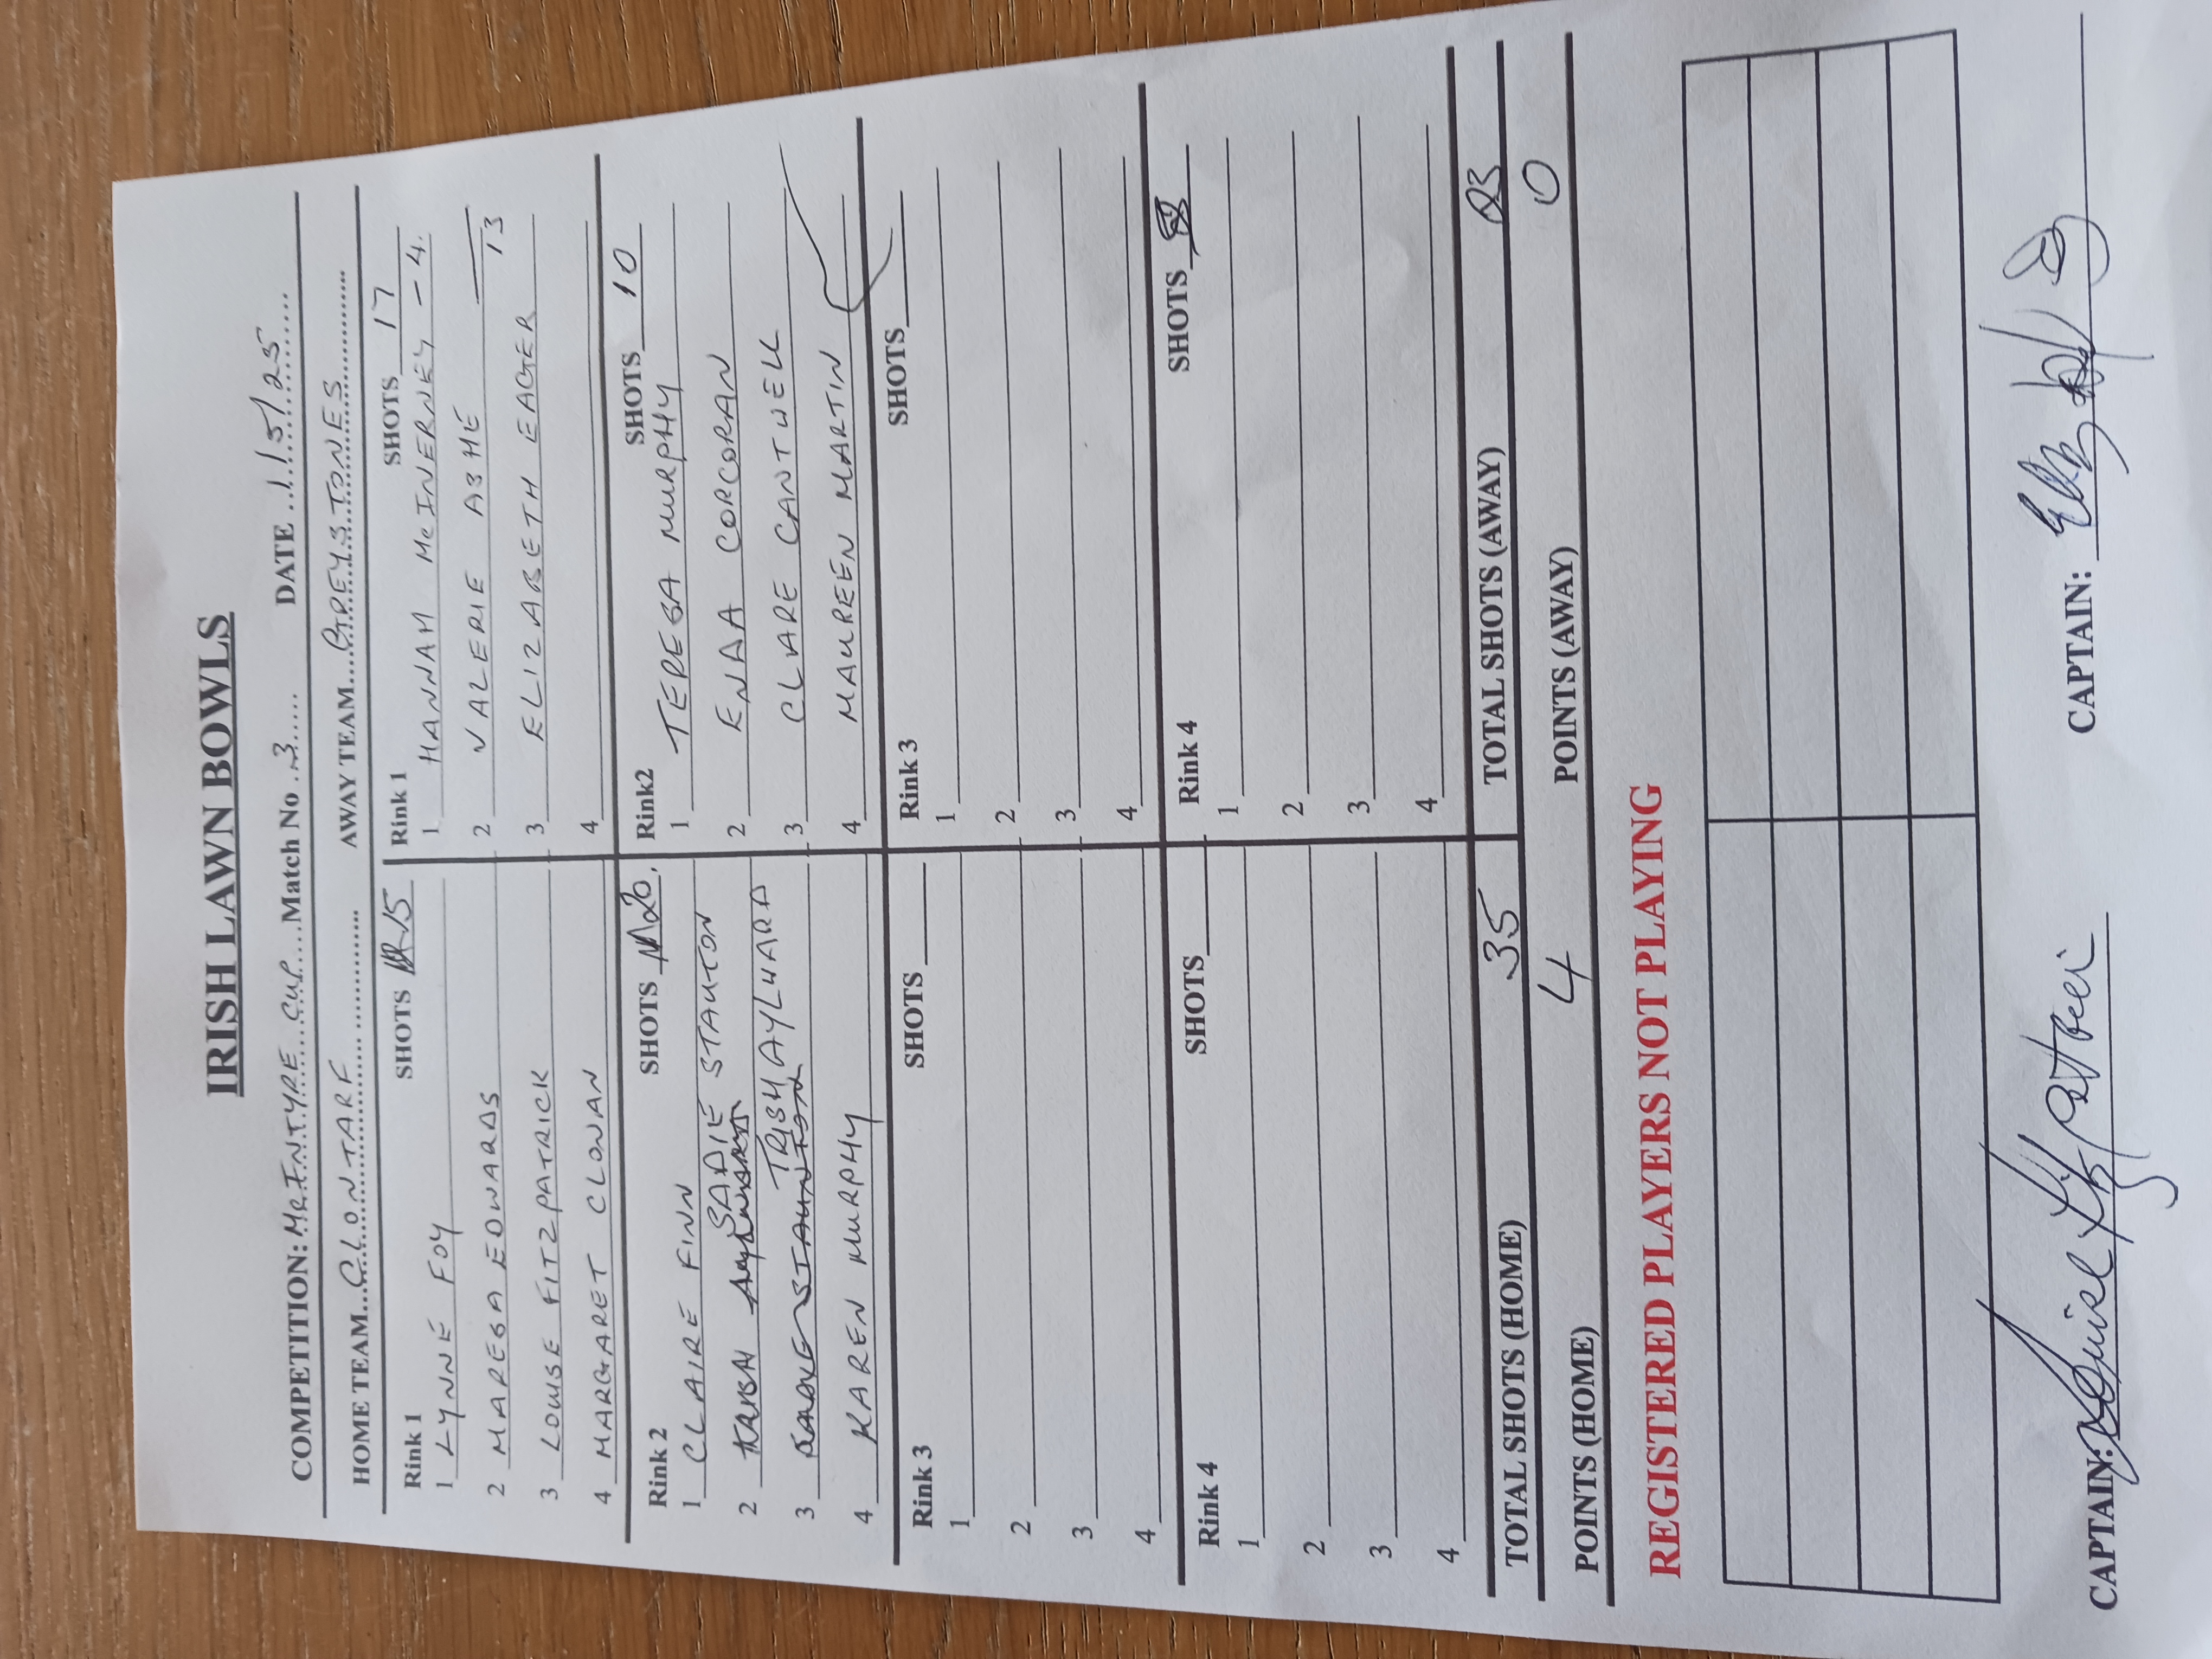 IRISH LAWN BOWLS
COMPETITION: McINTYRE CUP Match No. 3 DATE 1/5/25
HOME TEAM CLONTARF AWAY TEAM GREYSTONES
Rink 1 SHOTS 15 Rink 1 SHOTS 17
1 LYNNE FOY 1 HANNAH McINERNEY - 4.
2 MARESA EDWARDS 2 VALERIE ASHE 13
3 LOUISE FITZPATRICK 3 ELIZABETH EAGER
4 MARGARET CLONAN 4
Rink 2 SHOTS 20. Rink2 SHOTS 10
1 CLAIRE FINN 1 TERESA MURPHY
2 SADIE STAUTON 2 ENAA CORCORAN
3 TRISH AYLWARD 3 CLARE CANTWELL
4 KAREN MURPHY 4 MAUREEN MARTIN
Rink 3 SHOTS Rink 3 SHOTS
1 1
2 2
3 3
4 4
Rink 4 SHOTS Rink 4 SHOTS
1 1
2 2
3 3
4 4
TOTAL SHOTS (HOME) 35 TOTAL SHOTS (AWAY) 23
POINTS (HOME) 4 POINTS (AWAY) 0
REGISTERED PLAYERS NOT PLAYING
CAPTAIN: CAPTAIN: